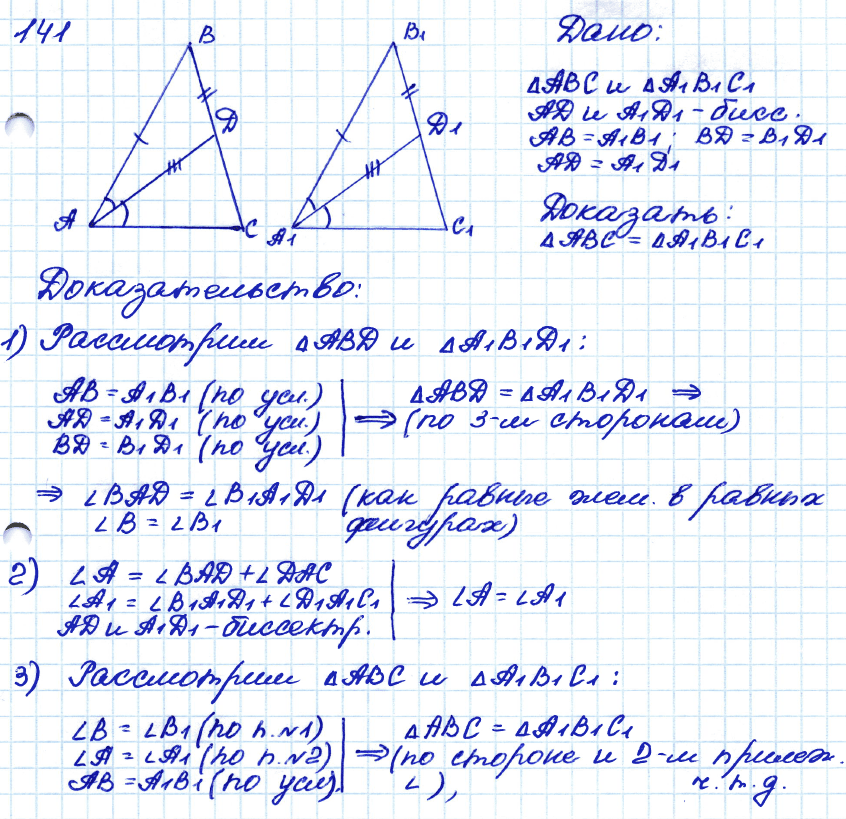 141
B
B₁
Д
Д₁
A
C
A₁
C₁
Дано:
△ABC и △A₁B₁C₁
AD и A₁D₁ - бисс.
AB = A₁B₁; BD = B₁D₁
AD = A₁D₁
Доказать:
△ABC = △A₁B₁C₁
Доказательство:
1) Рассмотрим △ABD и △A₁B₁D₁:
AB = A₁B₁ (по усл.)
AD = A₁D₁ (по усл.)
BD = B₁D₁ (по усл.)
⇒ △ABD = △A₁B₁D₁ ⇒
(по 3-м сторонам)
⇒ ∠BAD = ∠B₁A₁D₁ (как равные элем. в равных
∠B = ∠B₁ фигурах)
2) ∠A = ∠BAD + ∠DAC
∠A₁ = ∠B₁A₁D₁ + ∠D₁A₁C₁
AD и A₁D₁ - биссектр.
⇒ ∠A = ∠A₁
3) Рассмотрим △ABC и △A₁B₁C₁:
∠B = ∠B₁ (по п.№1)
∠A = ∠A₁ (по п.№2)
AB = A₁B₁ (по усл).
⇒ △ABC = △A₁B₁C₁
(по стороне и 2-м прилеж.
∠), ч.т.д.